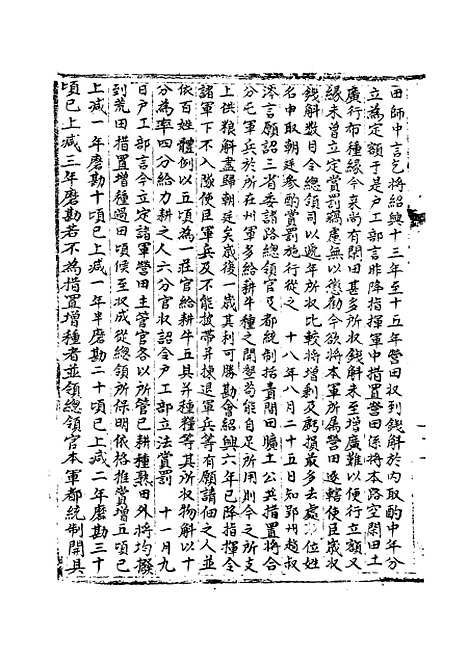 田師中言乞將紹興十三年至十五年營田収到錢斛於內取酌中年分
立為定額于是戶工部言非降指揮軍中措置營田係將本路空閑田土
廣行布種緣今來尚有閑田甚多所収錢斛未至增廣難以便行立額又
緣未曾立定賞罰竊慮無以懲勸今欲將本軍所屬營田逐轄使臣歲収
錢斛數目令總領司以遞年所収比較將增剩及虧損最多去處位姓
名申取朝廷參酌賞罰施行從之 十八年八月二十五日知鄂州趙叔
涔言願詔三省委諸路總領官及都統制括責閑田曠土公共措置將合
分屯軍兵於所在州軍多給耕牛種之閒墾苟能自足所用則今之所支
上供粮斛盡歸朝廷矣歲後一歲其利可勝勘會紹興六年已降指揮令
諸軍下不入隊使臣軍兵及不能披帶并揀退軍兵等有願請佃之人並
依百姓體例以五頃為一莊官給耕牛五具并種粮等其所収物斛以十
分為率四分給力耕之人六分官収詔令戶工部立法賞罰 十一月九
日戶工部言今立定諸軍營田主管官各以所管已耕種熟田外將均撥
到荒田措置增種過田頃候至収成從總領所保明依格推賞增五頃已
上減一年磨勘十頃已上減一年半磨勘二十頃已上減二年磨勘三十
頃已上減三年磨勘若不為措置增種者並領總領官本軍都統制開具